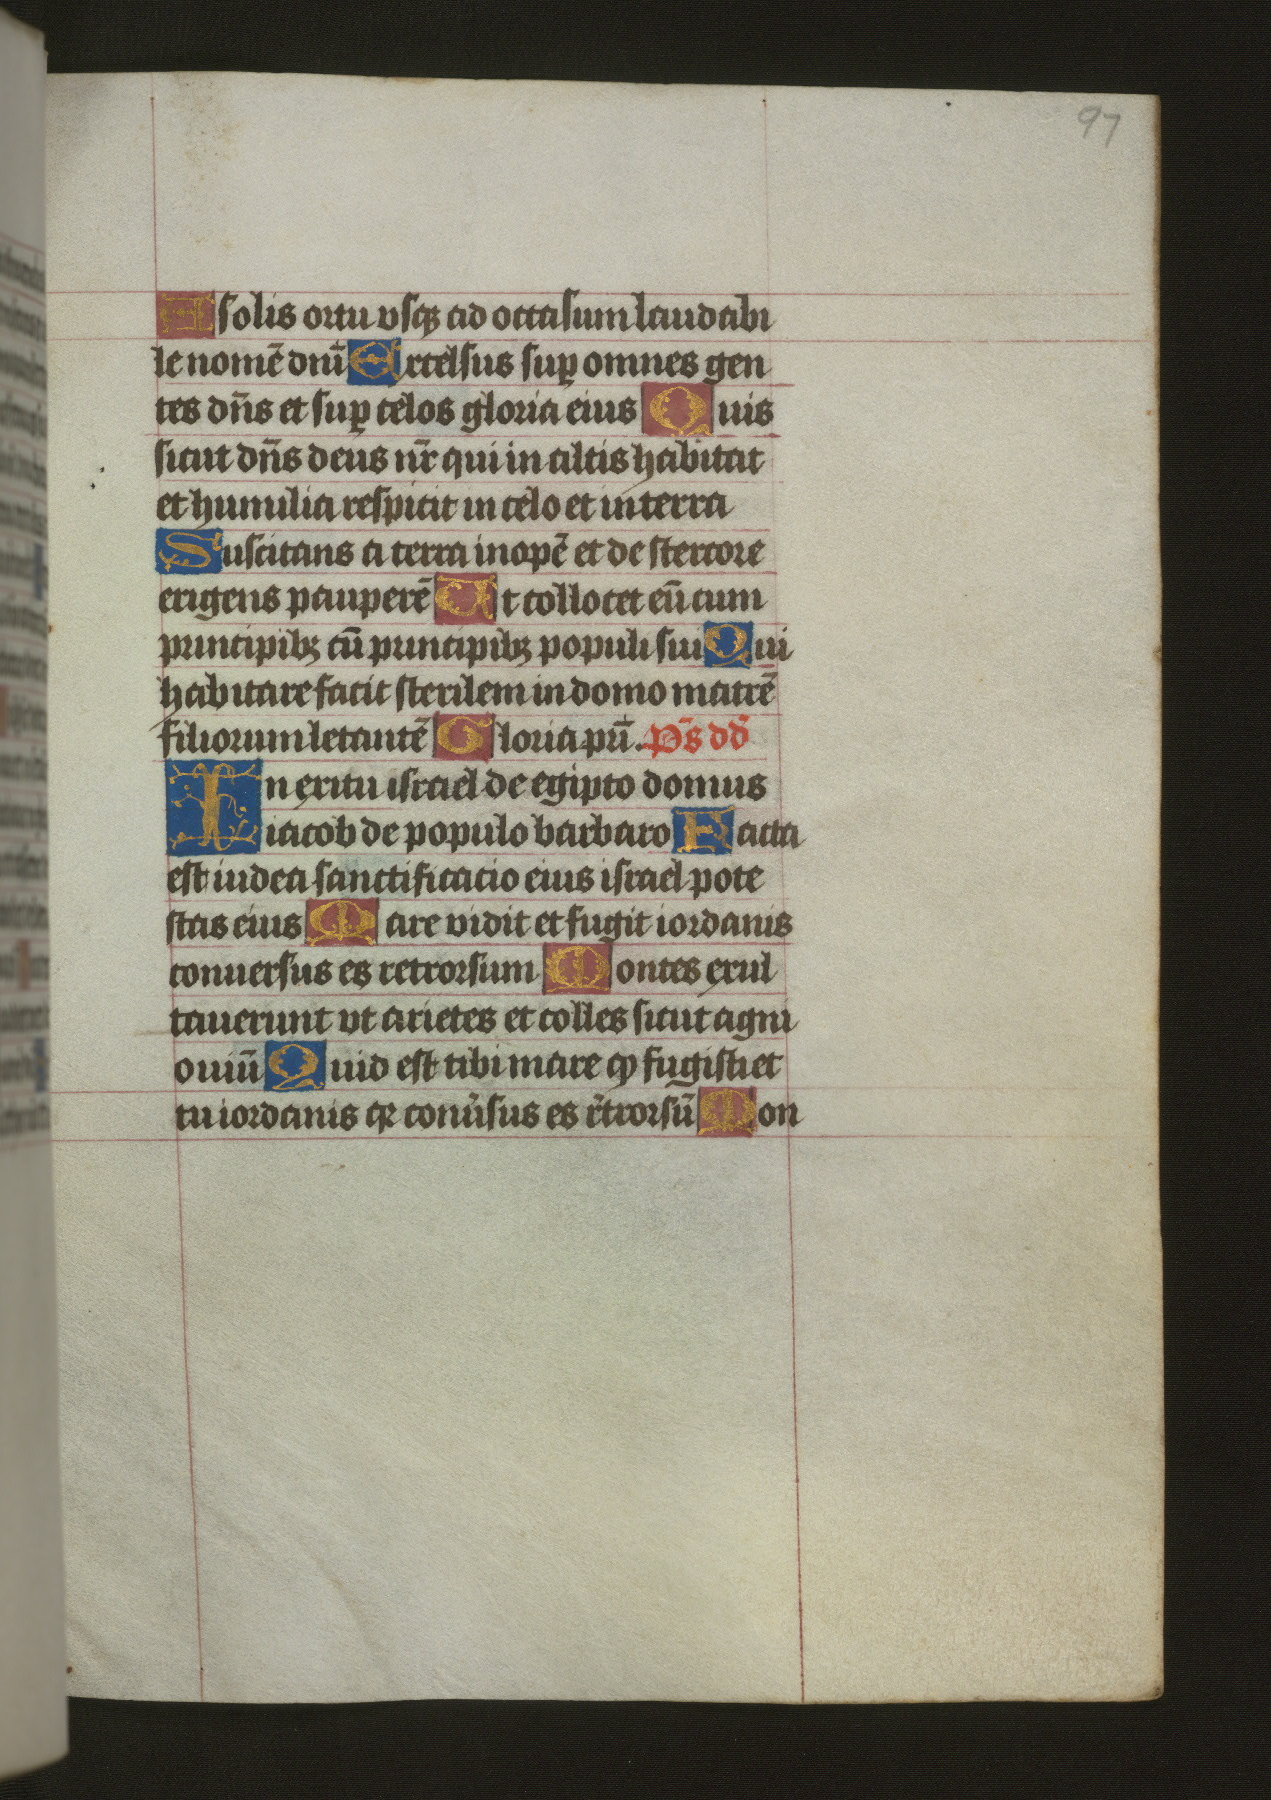 97
A solis ortu vsqꝫ ad occasum laudabi
le nomē dnī Excelsus suꝑ omnes gen
tes dn̄s et suꝑ celos gloria eius Quis
sicut dn̄s deus nr̄ qui in altis habitat
et humilia respicit in celo et in terra
Suscitans a terra inopē et de stercore
erigens pauperē Vt collocet eū cum
principibꝫ cū principibꝫ populi sui Qui
habitare facit sterilem in domo matrē
filiorum letantē Gloria pr̄i. Ps̄ dd̄
In exitu israel de egipto domus
iacob de populo barbaro Facta
est iudea sanctificacio eius israel pote
stas eius Mare vidit et fugit iordanis
conuersus es retrorsum Montes exul
tauerunt vt arietes et colles sicut agni
ouiū Quid est tibi mare ꝙ fugisti et
tu iordanis qꝛ conũsus es r̄trorsū Mon